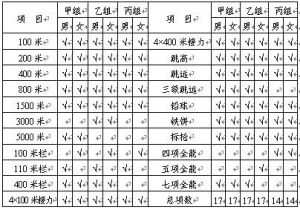 项目 甲组 乙组 丙组 项目 甲组 乙组 丙组
男 女 男 女 男 女 男 女 男 女 男 女
100米 √ √ √ √ √ √ 4×400米接力 √ √ √ √ √ √
200米 √ √ √ √ √ √ 跳高 √ √ √ √ √ √
400米 √ √ √ √ √ √ 跳远 √ √ √ √ √ √
800米 √ √ √ √ √ √ 三级跳远
1500米 √ √ √ √ √ √ 铅球 √ √ √ √ √ √
3000米 铁饼
5000米 标枪
100米栏 四项全能
110米栏 五项全能
400米栏 七项全能
4×100米接力 √ √ √ √ √ √ 总项数 17 17 17 17 14 14